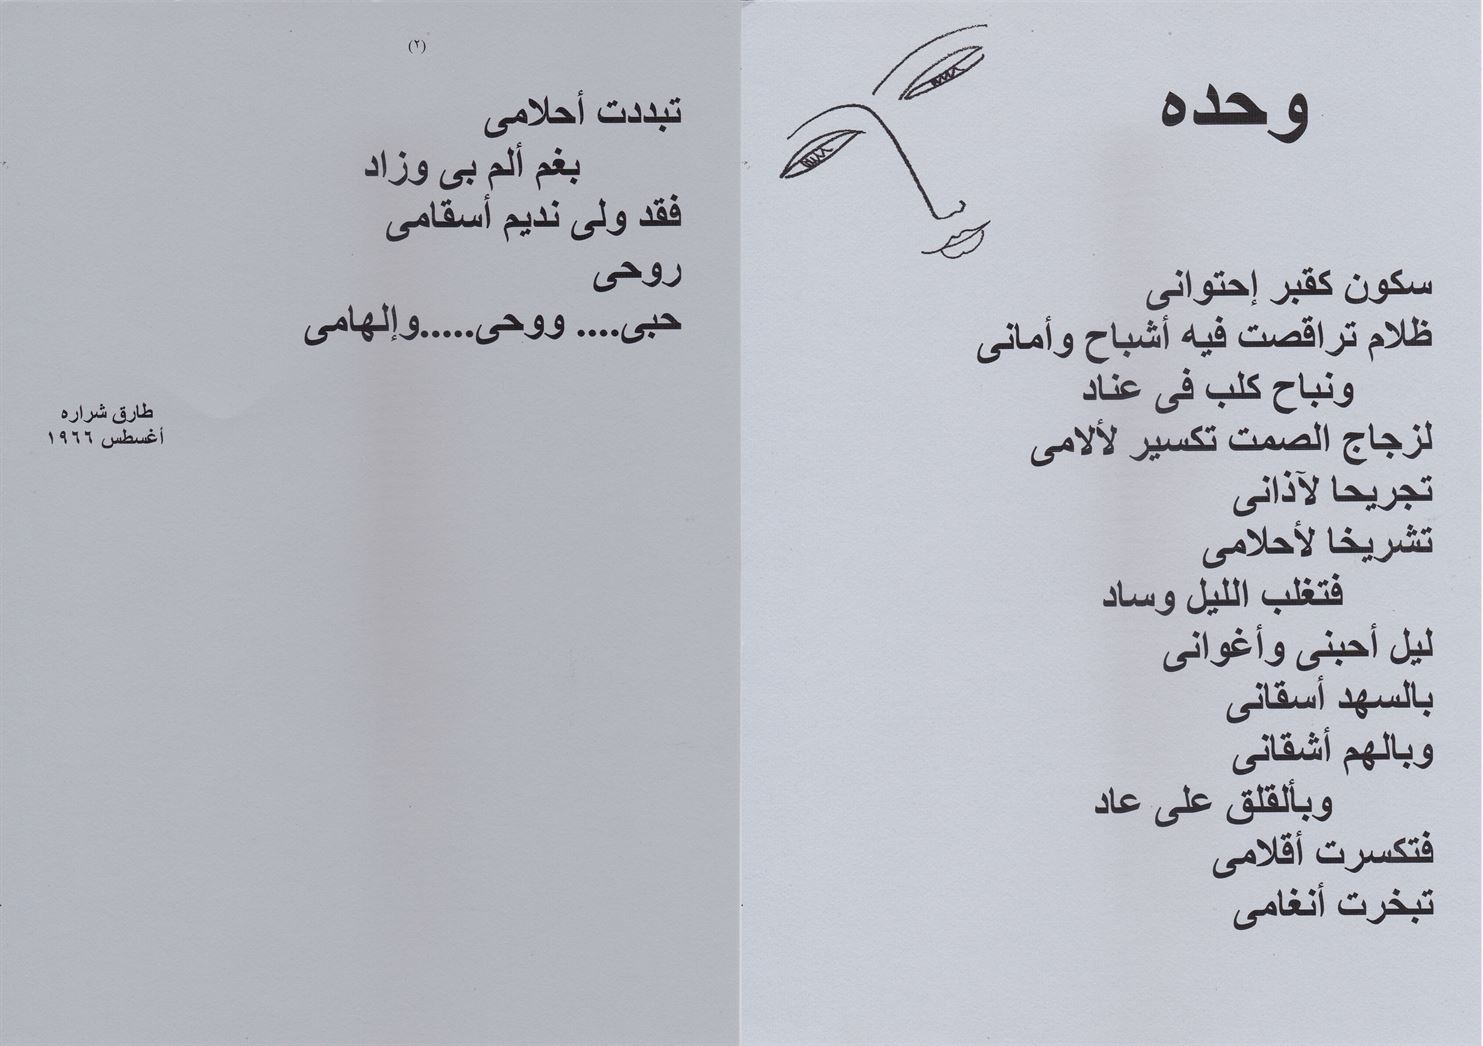 وحده
سكون كقبر إحتوانى
ظلام تراقصت فيه أشباح وأمانى
ونباح كلب فى عناد
لزجاج الصمت تكسير لألامى
تجريحا لآذانى
تشريخا لأحلامى
فتغلب الليل وساد
ليل أحبنى وأغوانى
بالسهد أسقانى
وبالهم أشقانى
وبألقلق على عاد
فتكسرت أقلامى
تبخرت أنغامى
(٢)
تبددت أحلامى
بغم ألم بى وزاد
فقد ولى نديم أسقامى
روحى
حبى.... ووحى.....وإلهامى
طارق شراره
أغسطس ١٩٦٦